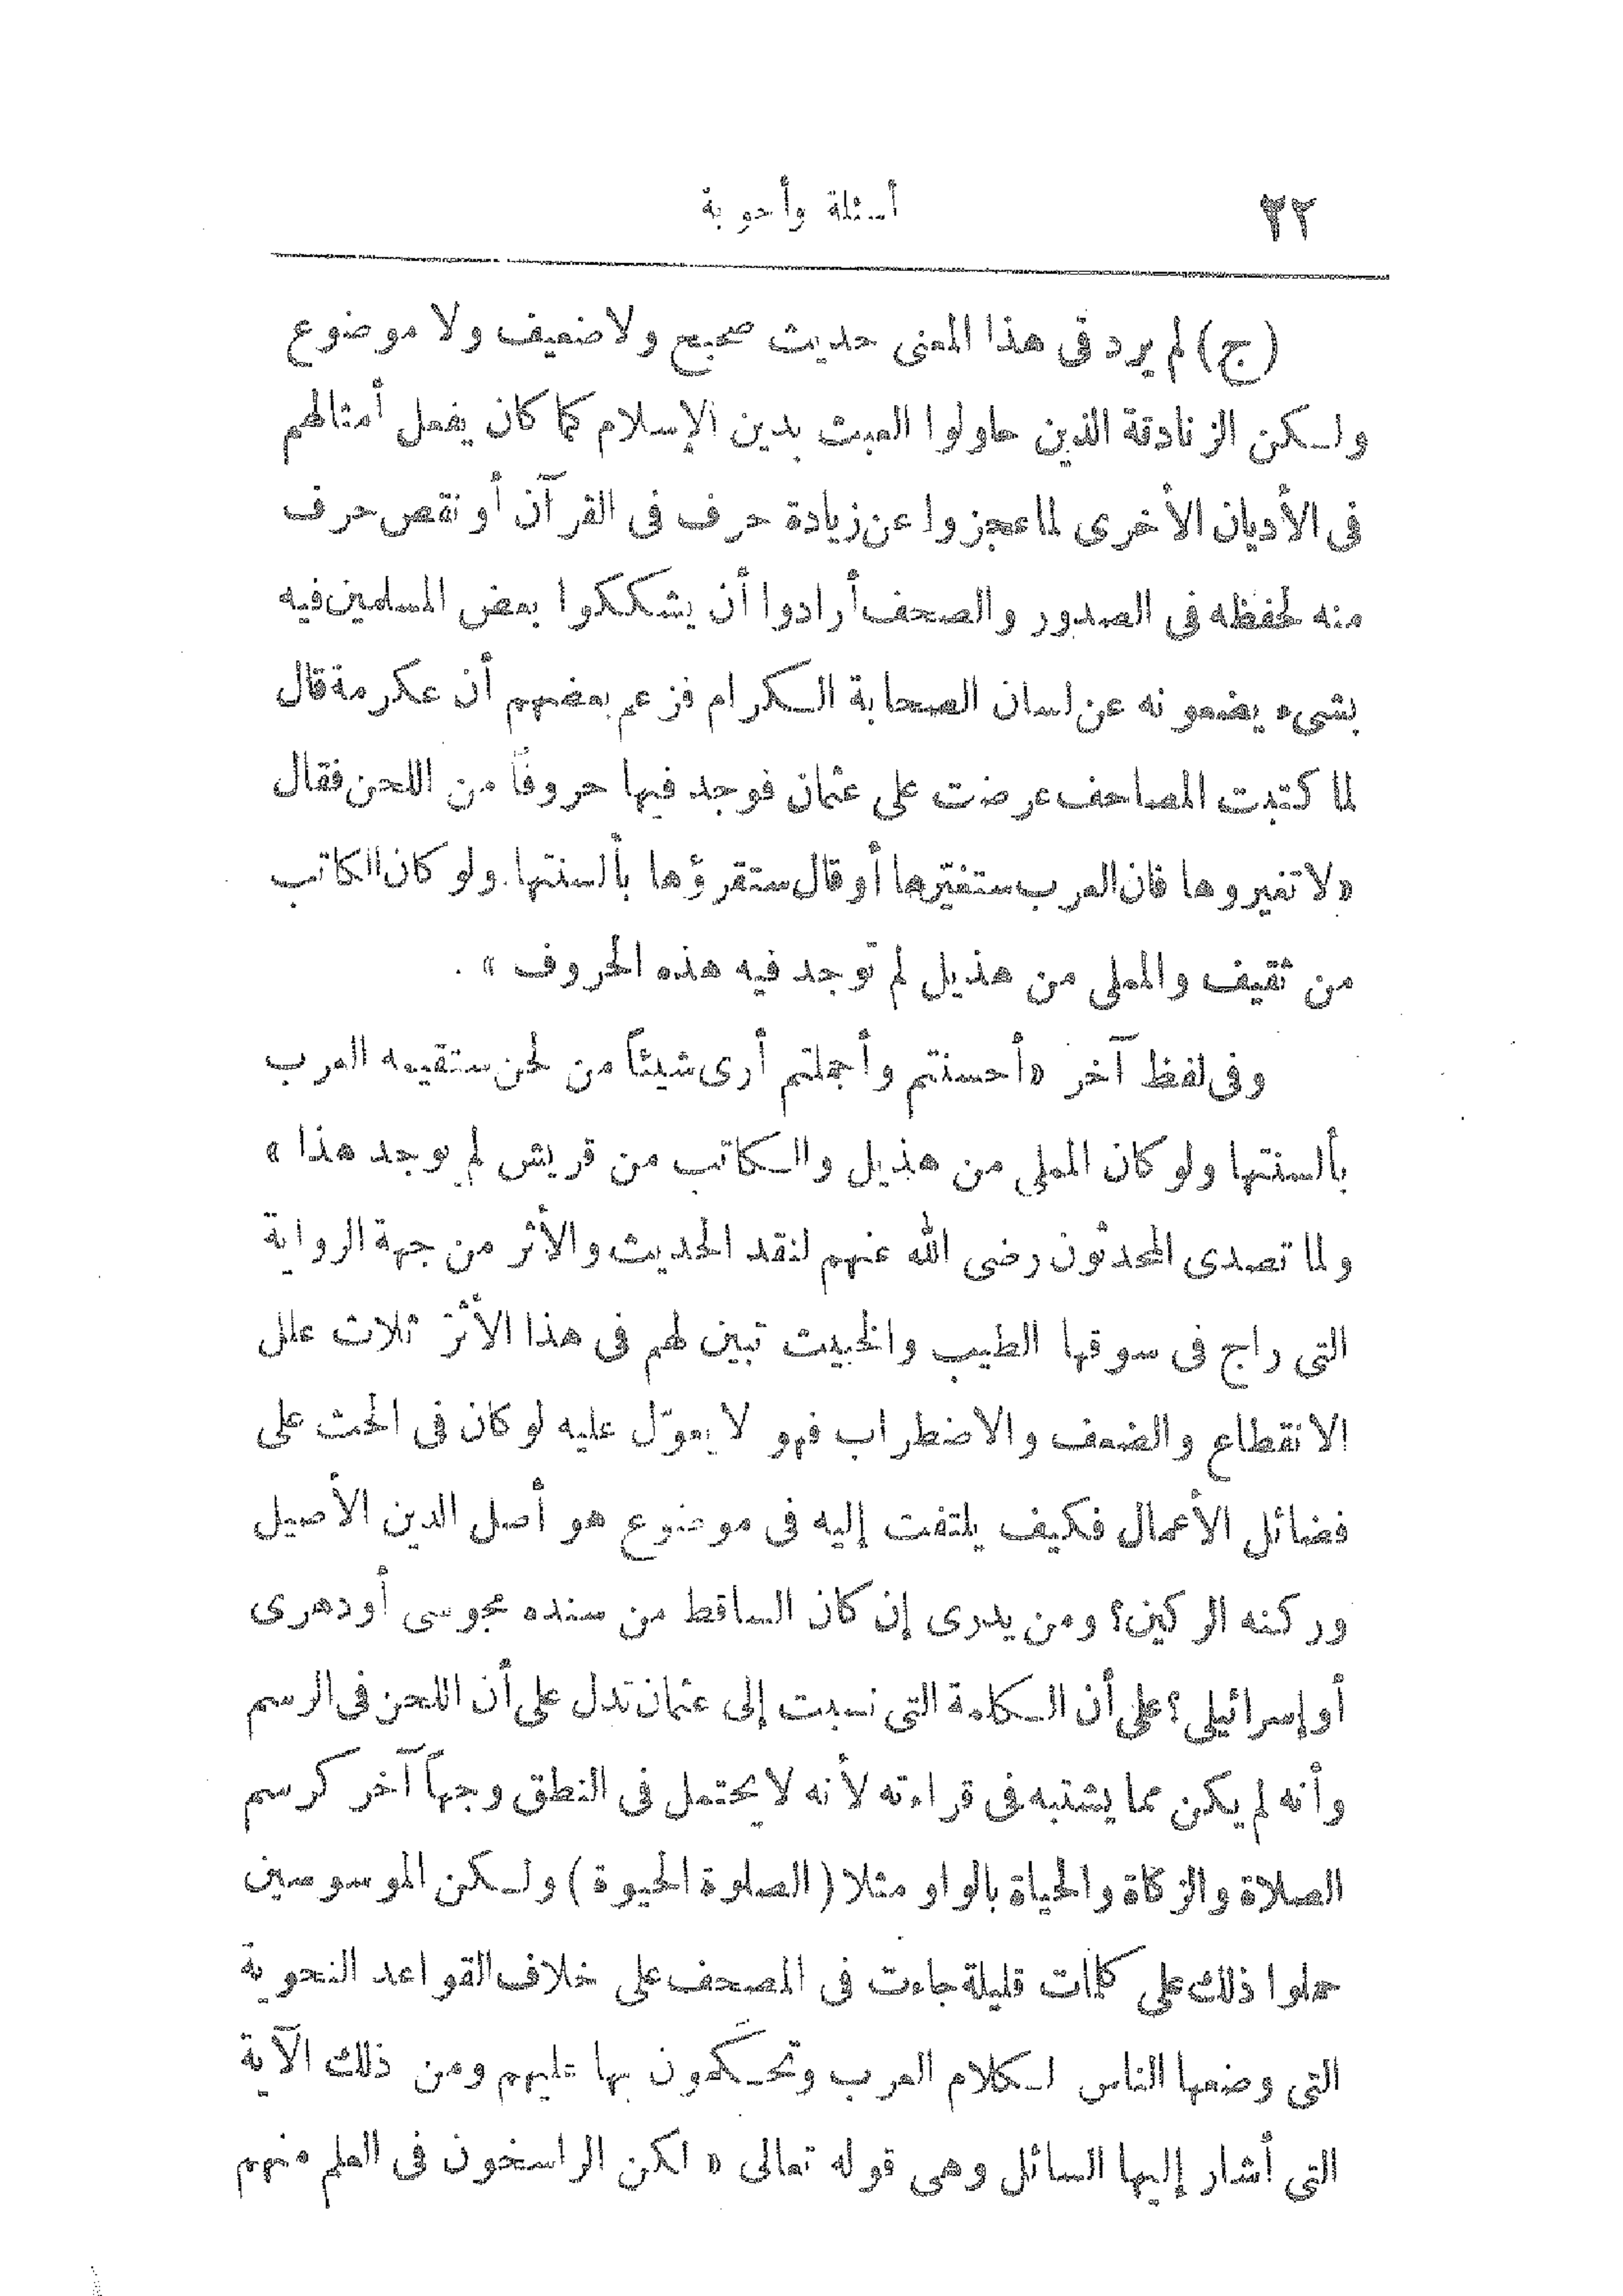 ٣٢
أسئلة وأجوبة
(ج) لم يرد فى هذا المعنى حديث صحيح ولا ضعيف ولا موضوع
ولكن الزنادقة الذين حاولوا العبث بدين الإسلام كما كان يفعل أمثالهم
فى الأديان الأخرى لما عجزوا عن زيادة حرف فى القرآن أو نقص حرف
منه لحفظه فى الصدور والصحف أرادوا أن يشككوا بعض المسلمين فيه
بشىء يضعونه عن لسان الصحابة الكرام فزعم بعضهم أن عكرمة قال
لما كتبت المصاحف عرضت على عثمان فوجد فيها حروفاً من اللحن فقال
«لا تغيروها فان العرب ستغيّرها أو قال ستقرؤها بألسنتها. ولو كان الكاتب
من ثقيف والمملى من هذيل لم توجد فيه هذه الحروف» .
وفى لفظ آخر «أحسنتم وأجملتم أرى شيئاً من لحن ستقيمه العرب
بألسنتها ولو كان المملى من هذيل والكاتب من قريش لم يوجد هذا»
ولما تصدى المحدثون رضى الله عنهم لنقد الحديث والأثر من جهة الرواية
التى راج فى سوقها الطيب والخبيث تبين لهم فى هذا الأثر ثلاث علل
الانقطاع والضعف والاضطراب فهو لا يعوّل عليه لو كان فى الحث على
فضائل الأعمال فكيف يلتفت إليه فى موضوع هو أصل الدين الأصيل
وركنه الركين؟ ومن يدرى إن كان الساقط من سنده مجوسى أو دهرى
أو إسرائيلى؟ على أن الكلمة التى نسبت إلى عثمان تدل على أن اللحن فى الرسم
وأنه لم يكن مما يشتبه فى قراءته لأنه لا يحتمل فى النطق وجهاً آخر كرسم
الصلاة والزكاة والحياة بالواو مثلا (الصلوة الحيوة) ولكن الموسوسين
حملوا ذلك على كلمات قليلة جاءت فى المصحف على خلاف القواعد النحوية
التى وضعها الناس لكلام العرب وتحكمون بها عليهم ومن ذلك الآية
التى أشار إليها السائل وهى قوله تعالى «لكن الراسخون فى العلم منهم